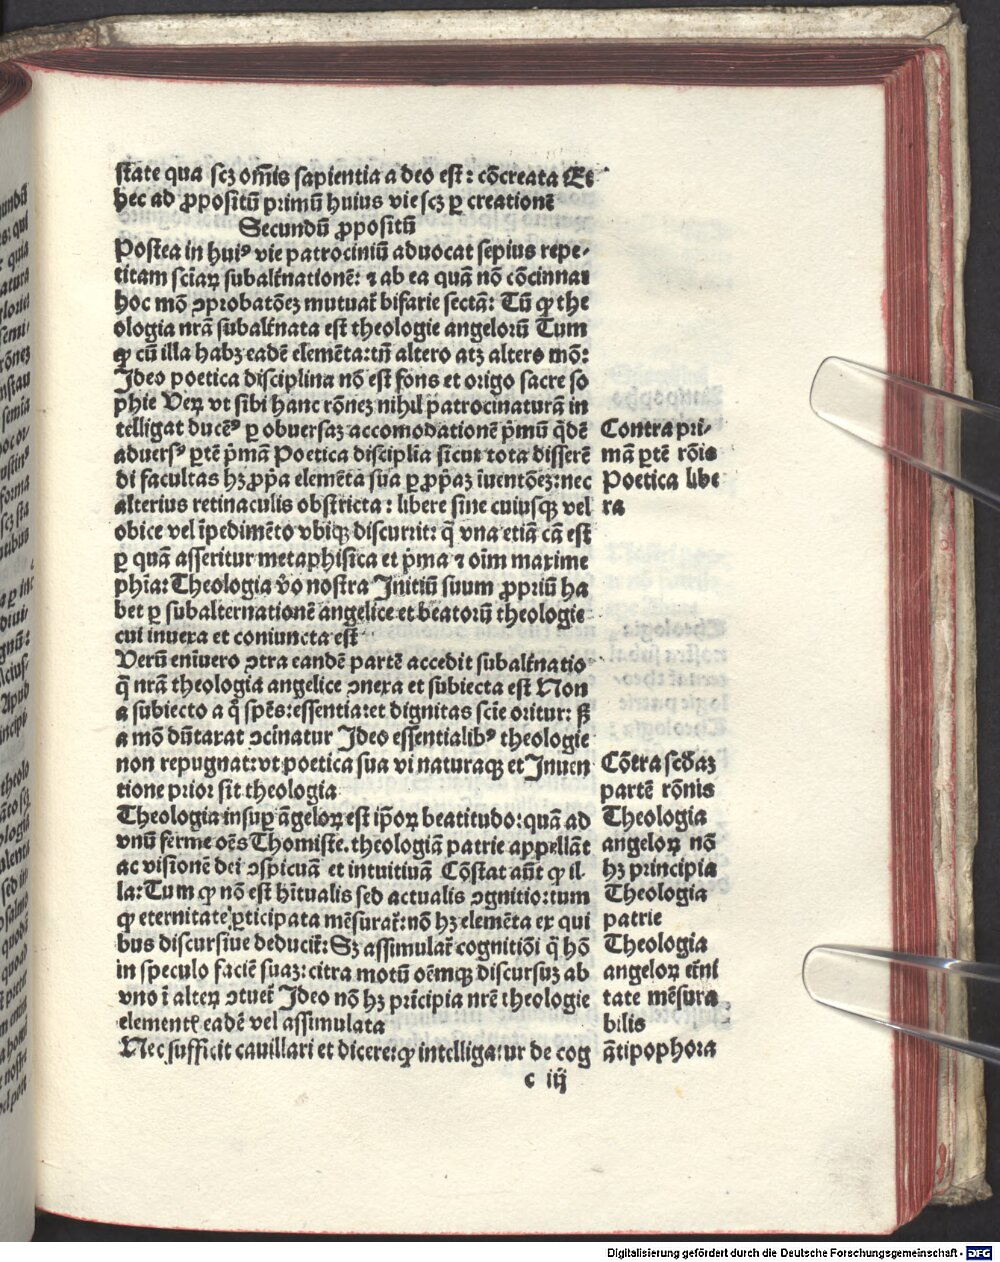 ſtate qua ſcꝫ om̄is ſapientia a deo eſt: cōcreata Et
hec ad ꝓpoſitū primū huius vie ſcꝫ ꝑ creationē
Secundū ꝓpoſitū
Poſtea in huiꝰ vie patrociniū aduocat ſepius repe-
titam ſciaꝝ ſubalt̄nationē: ⁊ ab ea quā nō cōcinnat
hoc mō ꝓprobatōeꝫ mutuat̄ bifarie ſectā: Tū ꝙ the
ologia nr̄a ſubalt̄nata eſt theologie angeloꝝ Tum
ꝙ cū illa habꝫ eadē elemēta: tn̄ altero atꝫ altero mō:
Ideo poetica diſciplina nō eſt fons et origo ſacre ſo
phie Veꝝ vt ſibi hanc rōneꝫ nihil patrocinaturā in
telligat ducēꝰ ꝑ obuerſaꝫ accomodationē p̄mū q̄dē
aduerſꝰ ꝑtē p̄mā Poetica diſciplīa ſicut tota differē
di facultas hꝫ ꝓpͥa elemēta ſua ꝑ ꝓpͥaꝫ iuentōeꝫ: nec
alterius retinaculis obſtricta: libere ſine cuiuſqꝫ vel
obice vel īpedimēto vbiqꝫ diſcurrit: q̄ vna etiā cā eſt
ꝑ quā aſſeritur metaphiſica et p̄ma ⁊ oīm maxime
phīa: Theologia v̄o noſtra Initiū ſuum ꝓpriū ha
bet ꝑ ſubalternationē angelice et beatoꝝ theologie
cui inuexa et coniuncta eſt
Verū enīuero ↄtra eandē partē accedit ſubalt̄natio
q̄ nr̄a theologia angelice ↄnexa et ſubiecta eſt Non
a ſubiecto a q̄ ſpēs: eſſentia: et dignitas ſcīe oritur: ſꝫ
a mō dūtaxat ↄcinatur Ideo eſſentialibꝰ theologie
non repugnat: vt poetica ſua vi naturaqꝫ et Inuen
tione prior ſit theologia
Theologia inſuꝑ āgeloꝝ eſt ip̄oꝝ beatitudo: quā ad
vnū ferme oēs Thomiſte. theologiā patrie appellāt
ac viſionē dei ↄſpicuā et intuitiuā Cōſtat aūt ꝙ il
la: Tum ꝙ nō eſt hītualis ſed actualis ↄgnitio: tum
ꝙ eternitate ꝑticipata mēſurat̄: nō hꝫ elemēta ex qui
bus diſcurſiue deducit̄: Sꝫ aſſimulat̄ cognitiōi q̄ hō
in ſpeculo faciē ſuaꝫ: citra motū oēmqꝫ diſcurſuꝫ ab
vno ī alteꝝ ↄtuet̄ Ideo nō hꝫ prīcipia nr̄e theologie
elementꝭ eadē vel aſſimulata
Nec ſufficit cauillari et dicere: ꝙ intelligatur de cog
c iij
Contra pri-
mā ꝑtē rōis
Poetica libe
ra
Cōtra ſcdaꝫ
partē rōnis
Theologia
angeloꝝ nō
hꝫ principia
Theologia
patrie
Theologia
angeloꝝ et̄ni
tate mēſura
bilis
ātipophora
Digitalisierung gefördert durch die Deutsche Forschungsgemeinschaft - DFG